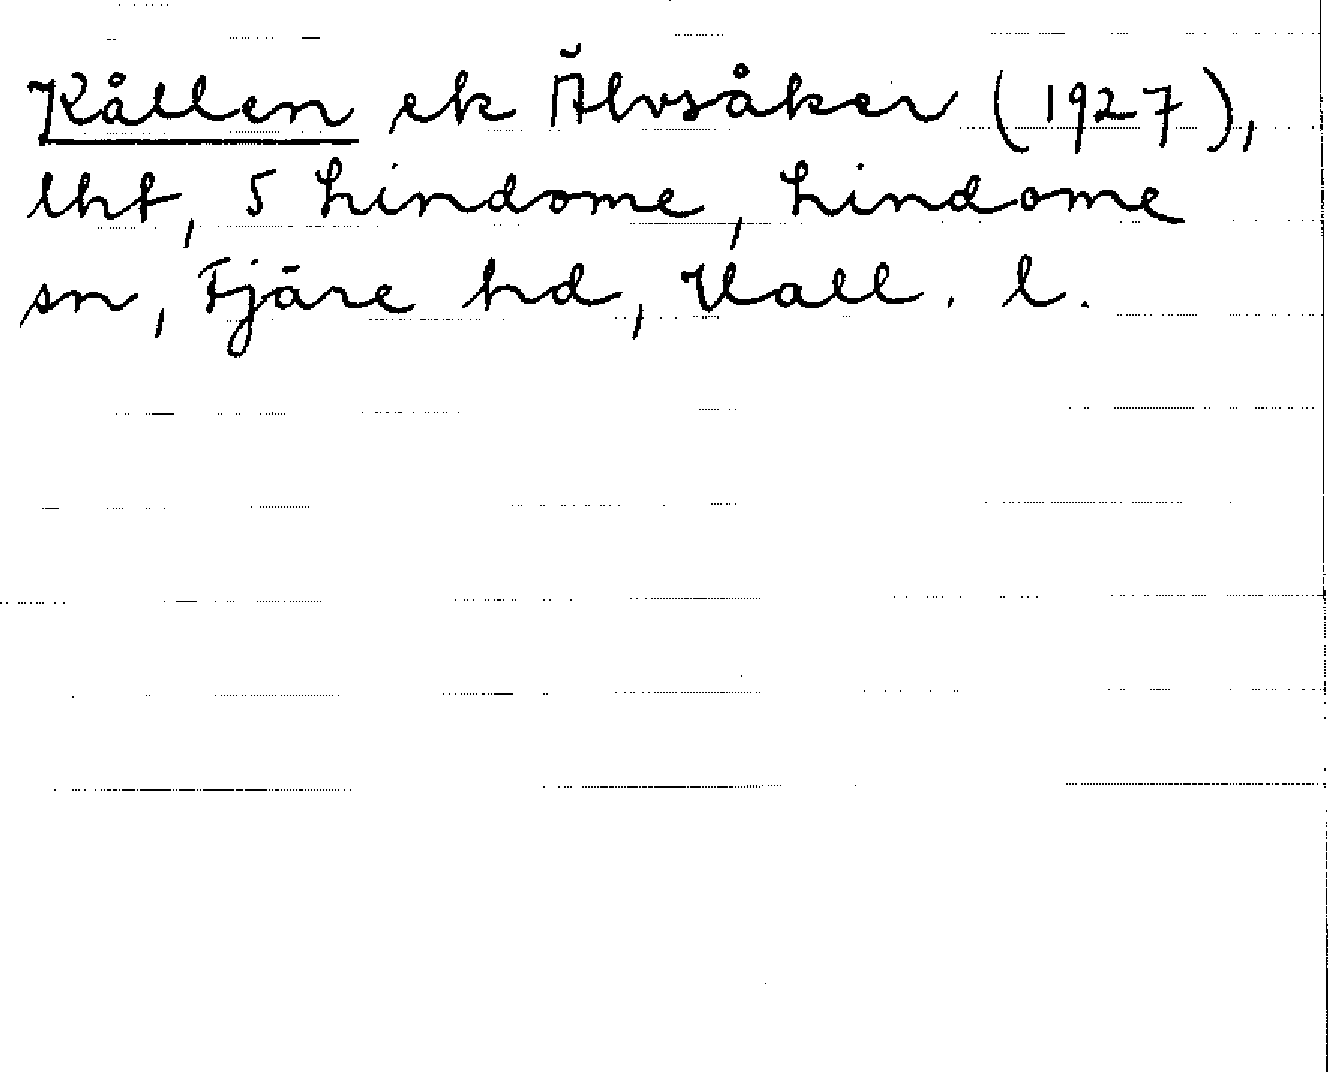 Kållen ek Älvsåker (1927),
lht, 5 Lindome, Lindome
sn, Fjäre hd, Hall. l.